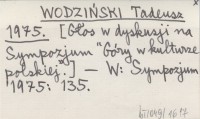 WODZIŃSKI Tadeusz
1975. [Głos w dyskusji na
Sympozjum "Góry w kulturze
polskiej".] — W: Sympozjum
1975: 135.